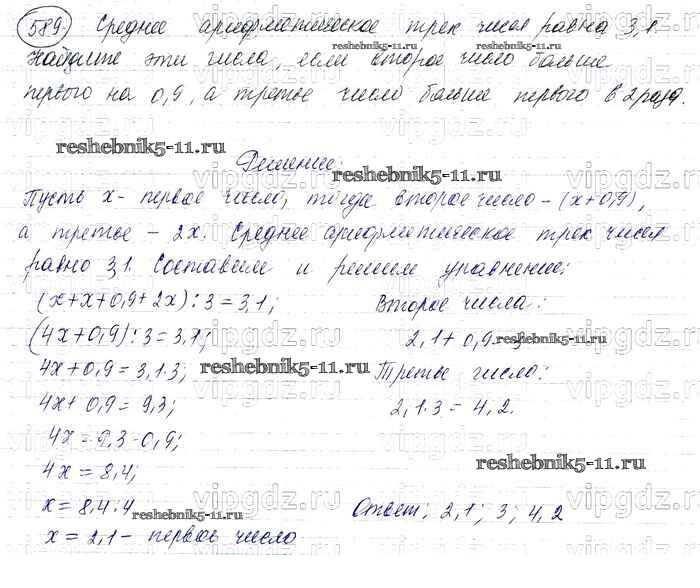 589. Среднее арифметическое трех чисел равно 3,1.
reshebnik5-11.ru
Найдите эти числа, если второе число больше
первого на 0,9, а третье число больше первого в 2 раза.
reshebnik5-11.ru
Решение:
reshebnik5-11.ru
Пусть x - первое число, тогда второе число - (x+0,9),
а третье - 2x. Среднее арифметическое трех чисел
равно 3,1. Составим и решим уравнение:
(x+x+0,9+2x):3=3,1;
Второе числа:
(4x+0,9):3=3,1;
2,1+0,9=3
reshebnik5-11.ru
4x+0,9=3,1·3;
Третье число:
4x+0,9=9,3;
2,1·3=4,2.
4x=9,3-0,9;
4x=8,4;
reshebnik5-11.ru
x=8,4:4
reshebnik5-11.ru
Ответ: 2,1; 3; 4,2
x=2,1- первое число
vipgdz.ru